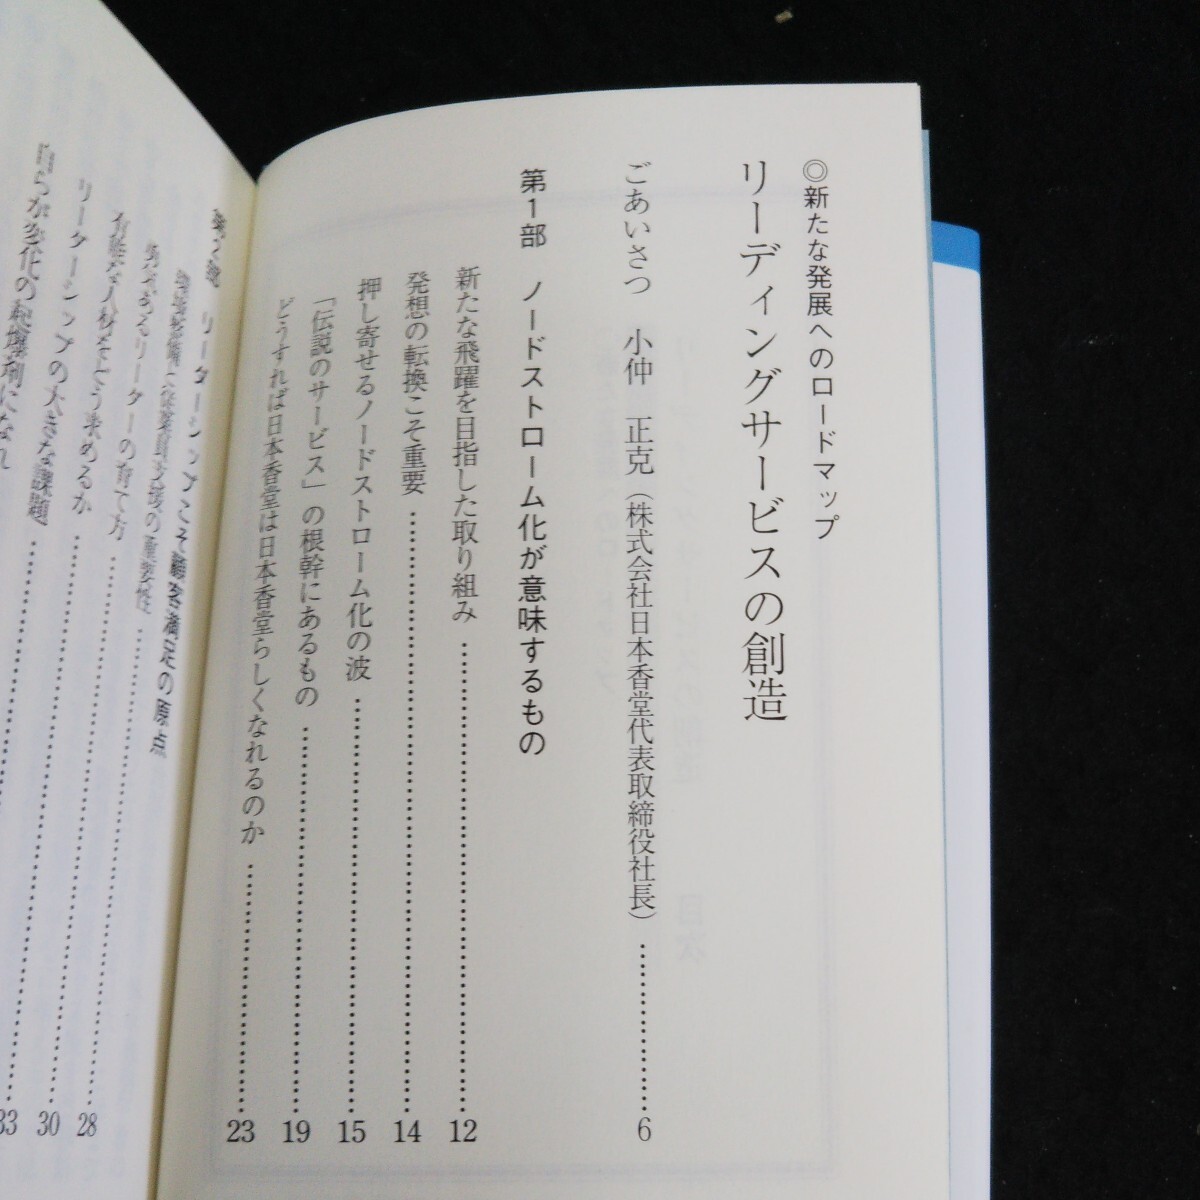 ◎新たな発展へのロードマップ
リーディングサービスの創造
ごあいさつ 小仲 正克（株式会社日本香堂代表取締役社長）…………… 6
第1部 ノードストローム化が意味するもの
新たな飛躍を目指した取り組み…………… 12
発想の転換こそ重要…………… 14
押し寄せるノードストローム化の波…………… 15
「伝説のサービス」の根幹にあるもの…………… 19
どうすれば日本香堂は日本香堂らしくなれるのか…………… 23
リーダーシップこそ顧客満足の原点
リーダーの育て方
有能な人材をどう求めるか…………… 28
リーダーシップの大きな課題…………… 30
自らが変化の起爆剤になれ…………… 33